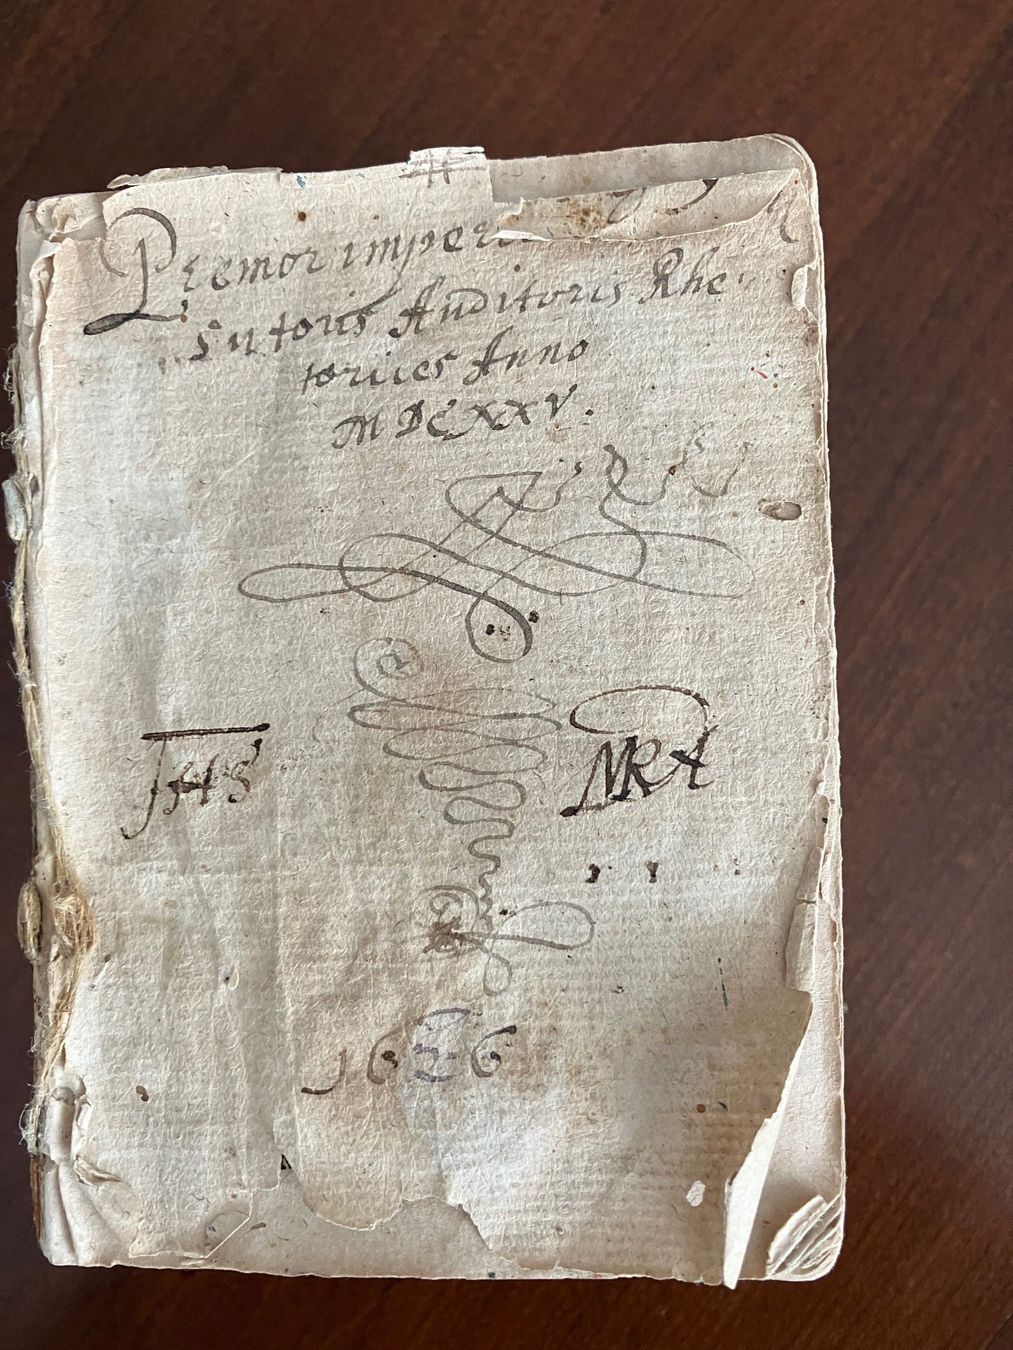 Premor imperi
Sutoris Auditoris Rhe
toriices Anno
MDCXXV.
JHS
MRA
1626